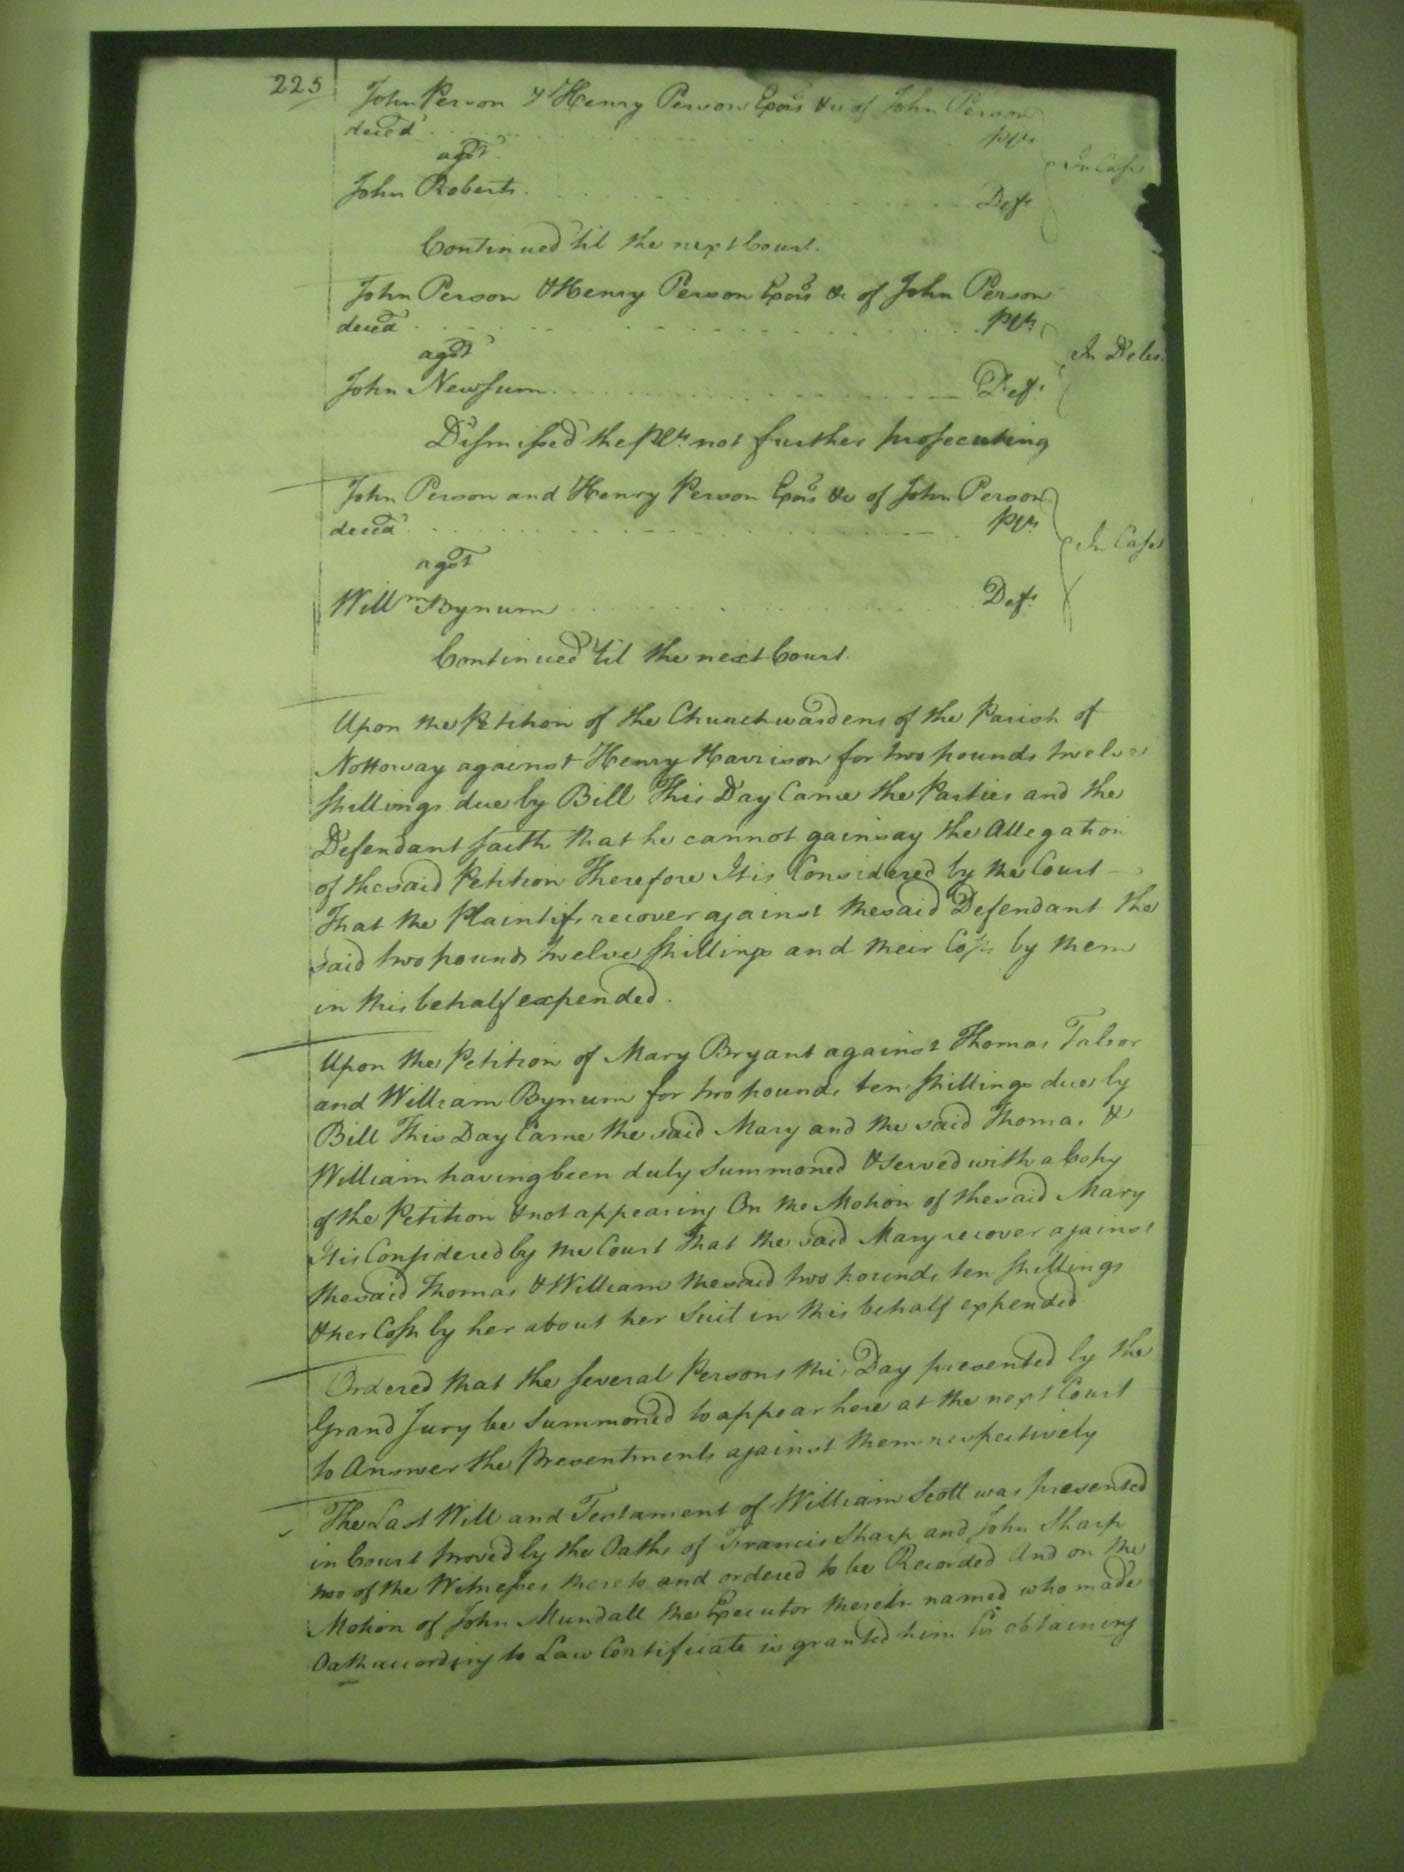 225
John Person & Henry Person Exors &c of John Person
deced . . . Plts
agst
In Case
John Roberts . . . Deft
Continued til the next Court.
John Person & Henry Person Exors &c of John Person
deced . . . Plts
agst
In Debt
John Newsum . . . Deft
Dismissed the Plts not further prosecuting
John Person and Henry Person Exors &c of John Person
deced . . . Plts
In Case
agst
Willm Bynum . . . Deft
Continued til the next Court.
Upon the Petition of the Churchwardens of the Parish of
Nottoway against Henry Harrison for two pounds twelve
shillings due by Bill This Day Came the Parties and the
Defendant saith that he cannot gainsay the Allegation
of the said Petition Therefore It is Considered by the Court
That the Plaintifs recover against the said Defendant the
said two pounds twelve shillings and their Costs by them
in this behalf expended.
Upon the Petition of Mary Bryant against Thomas Tabor
and William Bynum for two pounds ten shillings due by
Bill This Day Came the said Mary and the said Thomas &
William having been duly Summoned & served with a Copy
of the Petition & not appearing On the Motion of the said Mary
It is Considered by the Court That the said Mary recover against
the said Thomas & William the said two pounds ten shillings
& her Costs by her about her Suit in this behalf expended
Ordered that the several Persons this Day presented by the
Grand Jury be Summoned to appear here at the next Court
to Answer the Presentments against them respectively
The Last Will and Testament of William Scott was presented
in Court proved by the Oaths of Francis Sharp and John Sharp
two of the Witnesses thereto and ordered to be Recorded And on the
Motion of John Mundall the Executor therein named who made
Oath according to Law Certificate is granted him for obtaining